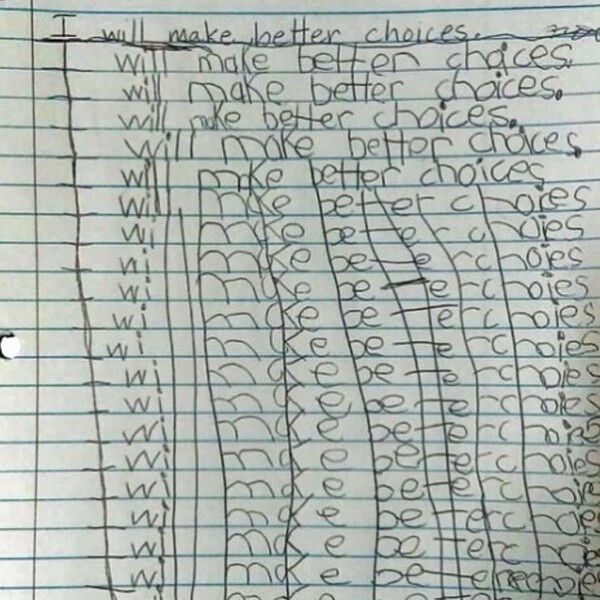 I will make better choices.
I will make better choices.
I will make better choices.
I will make better choices.
I will make better choices.
I will make better choices
I will make better choies
I will make better choies
I will make better choies
I will make better choies
I will make better choies
I will make better choies
I will make better choies
I will make better choies
I will make better choies
I will make better choies
I will make better choie
I will make better choe
I will make better cho
I will make better